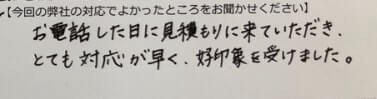 【今回の弊社の対応でよかったところをお聞かせください】
お電話した日に見積もりに来ていただき、
とても対応が早く、好印象を受けました。